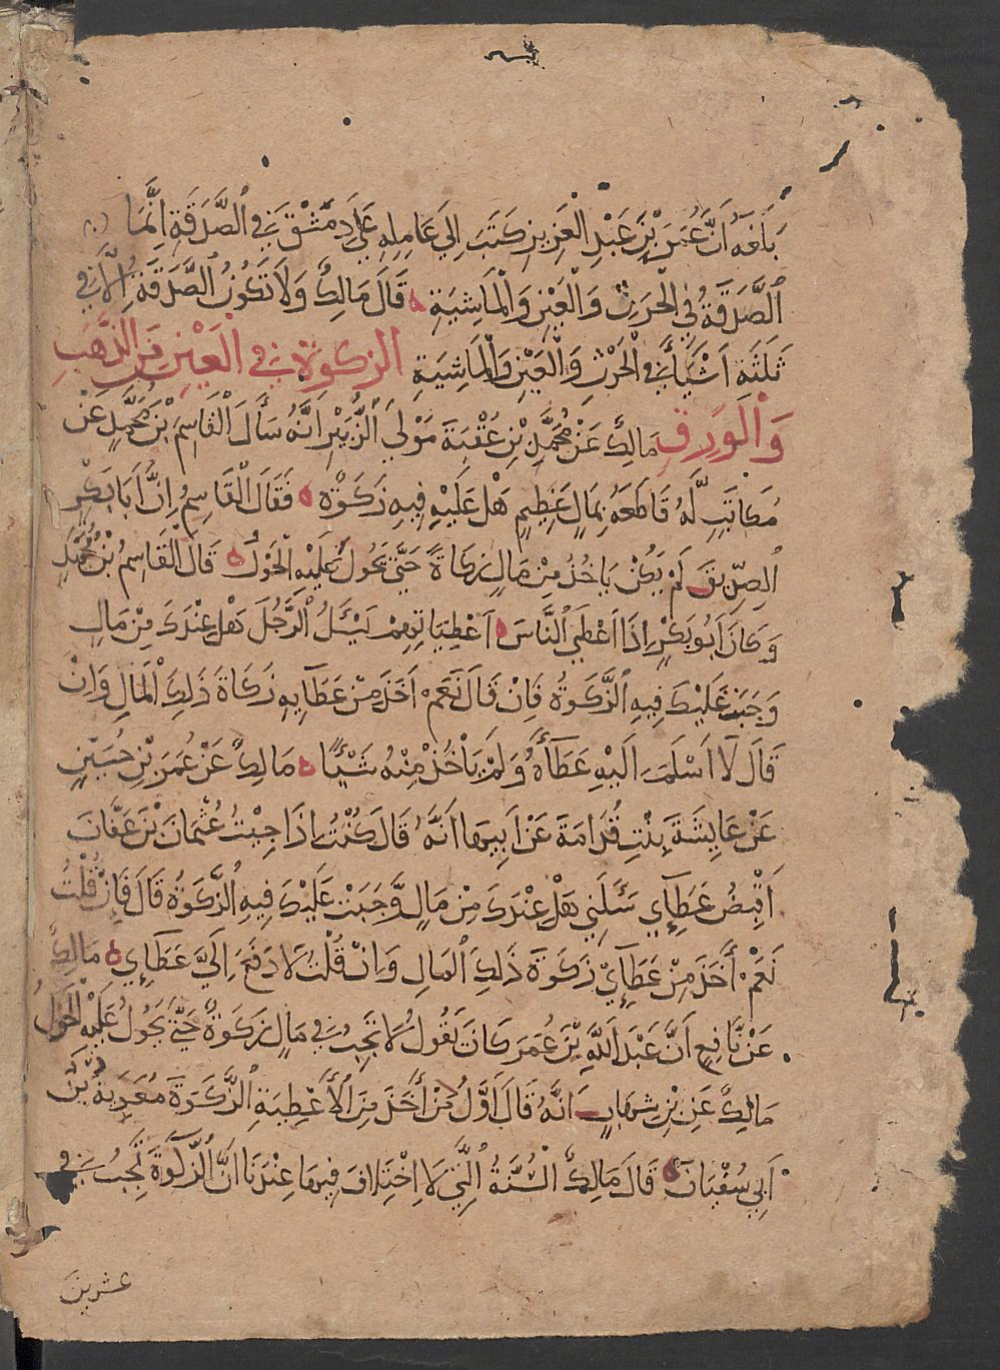 بَلَغَهُ اَنَّ عُمَرَ بْنَ عَبْدِ الْعَزِيزِ كَتَبَ اِلَي عَامِلِهِ عَلَي دِمَشْقَ فِي الصَّدَقَةِ اِنَّمَا
الصَّدَقَةُ فِي الْحَرْثِ وَالْعَيْنِ وَالْمَاشِيَةِ ه قَالَ مَالِكٌ وَلَا تَكُونُ الصَّدَقَةُ اِلَّا فِي
ثَلٰثَةِ اَشْيَآءَ فِي الْحَرْثِ وَالْعَيْنِ وَالْمَاشِيَةِ الزكوة في الْعَيْنِ مِنَ الذَّهَبِ
وَالْوَرِقِ مَالِكٌ عَنْ مُحَمَّدِ بْنِ عُقْبَةَ مَوْلَي الزُّبَيْرِ اَنَّهُ سَأَلَ الْقَاسِمَ بْنَ مُحَمَّدٍ عَنْ
مُكَاتَبٍ لَّهُ قَاطَعَهُ بِمَالٍ عَظِيمٍ هَلْ عَلَيْهِ فِيهِ زَكَوةٌ ه فَقَالَ الْقَاسِمُ اِنَّ اَبَا بَكْرٍ
الصِّدِّيقَ لَمْ يَكُنْ يَاخُذُ مِنْ مَالٍ زَكَاةً حَتَّي يَحُولَ عَلَيْهِ الْحَوْلُ ه قَالَ الْقَاسِمُ بْنُ مُحَمَّدٍ
وَكَانَ اَبُو بَكْرٍ اِذَا اَعْطَي النَّاسَ ه اَعْطِيَاتِهِمْ يَسْئَلُ الرَّجُلَ هَلْ عِنْدَكَ مِنْ مَالٍ
وَجَبَتْ عَلَيْكَ فِيهِ الزَّكَوةُ فَاِنْ قَالَ نَعَمْ اَخَذَ مِنْ عَطَآيِهِ زَكَاةَ ذَلِكَ الْمَالِ وَاِنْ
قَالَ لَا اَسْلَمَ اِلَيْهِ عَطَآءَهُ وَلَمْ يَاْخُذْ مِنْهُ شَيْئًا ه مَالِكٌ عَنْ عُمَرَ بْنِ حُسَيْنٍ
عَنْ عَايِشَةَ بِنْتِ قُدَامَةَ عَنْ اَبِيهَا اَنَّهُ قَالَ كُنْتُ اِذَا جِيْتُ عُثْمَانَ بْنَ عَفَّانَ
اَقْبِضُ عَطَآيِي سَئَلَنِي هَلْ عِنْدَكَ مِنْ مَالٍ وَّجَبَتْ عَلَيْكَ فِيهِ الزَّكَوةُ قَالَ فَاِنْ قُلْتُ
نَعَمْ اَخَذَ مِنْ عَطَآيِي زَكَوةَ ذَلِكَ الْمَالِ وَاِنْ قُلْتُ لَا دَفَعَ اِلَيَّ عَطَآيِي ه مَالِكٌ
عَنْ نَّافِعٍ اَنَّ عَبْدَ اللَّهِ بْنَ عُمَرَ كَانَ يَقُولُ لَا تَجِبُ فِي مَالٍ زَكَوةٌ حَتَّي يَحُولَ عَلَيْهِ الْحَوْلُ
مَالِكٌ عَنِ بْنِ شِهَابٍ اَنَّهُ قَالَ اَوَّلُ مَنْ اَخَذَ مِنَ الْاَعْطِيَةِ الزَّكَوةَ مُعَوِيَةُ بْنُ
اَبِي سُفْيَانَ ه قَالَ مَالِكٌ السُّنَّةُ الَّتِي لَا اِخْتِلَافَ فِيهَا عِنْدَنَا اَنَّ الزَّكَوةَ تَجِبُ فِي
عشرين